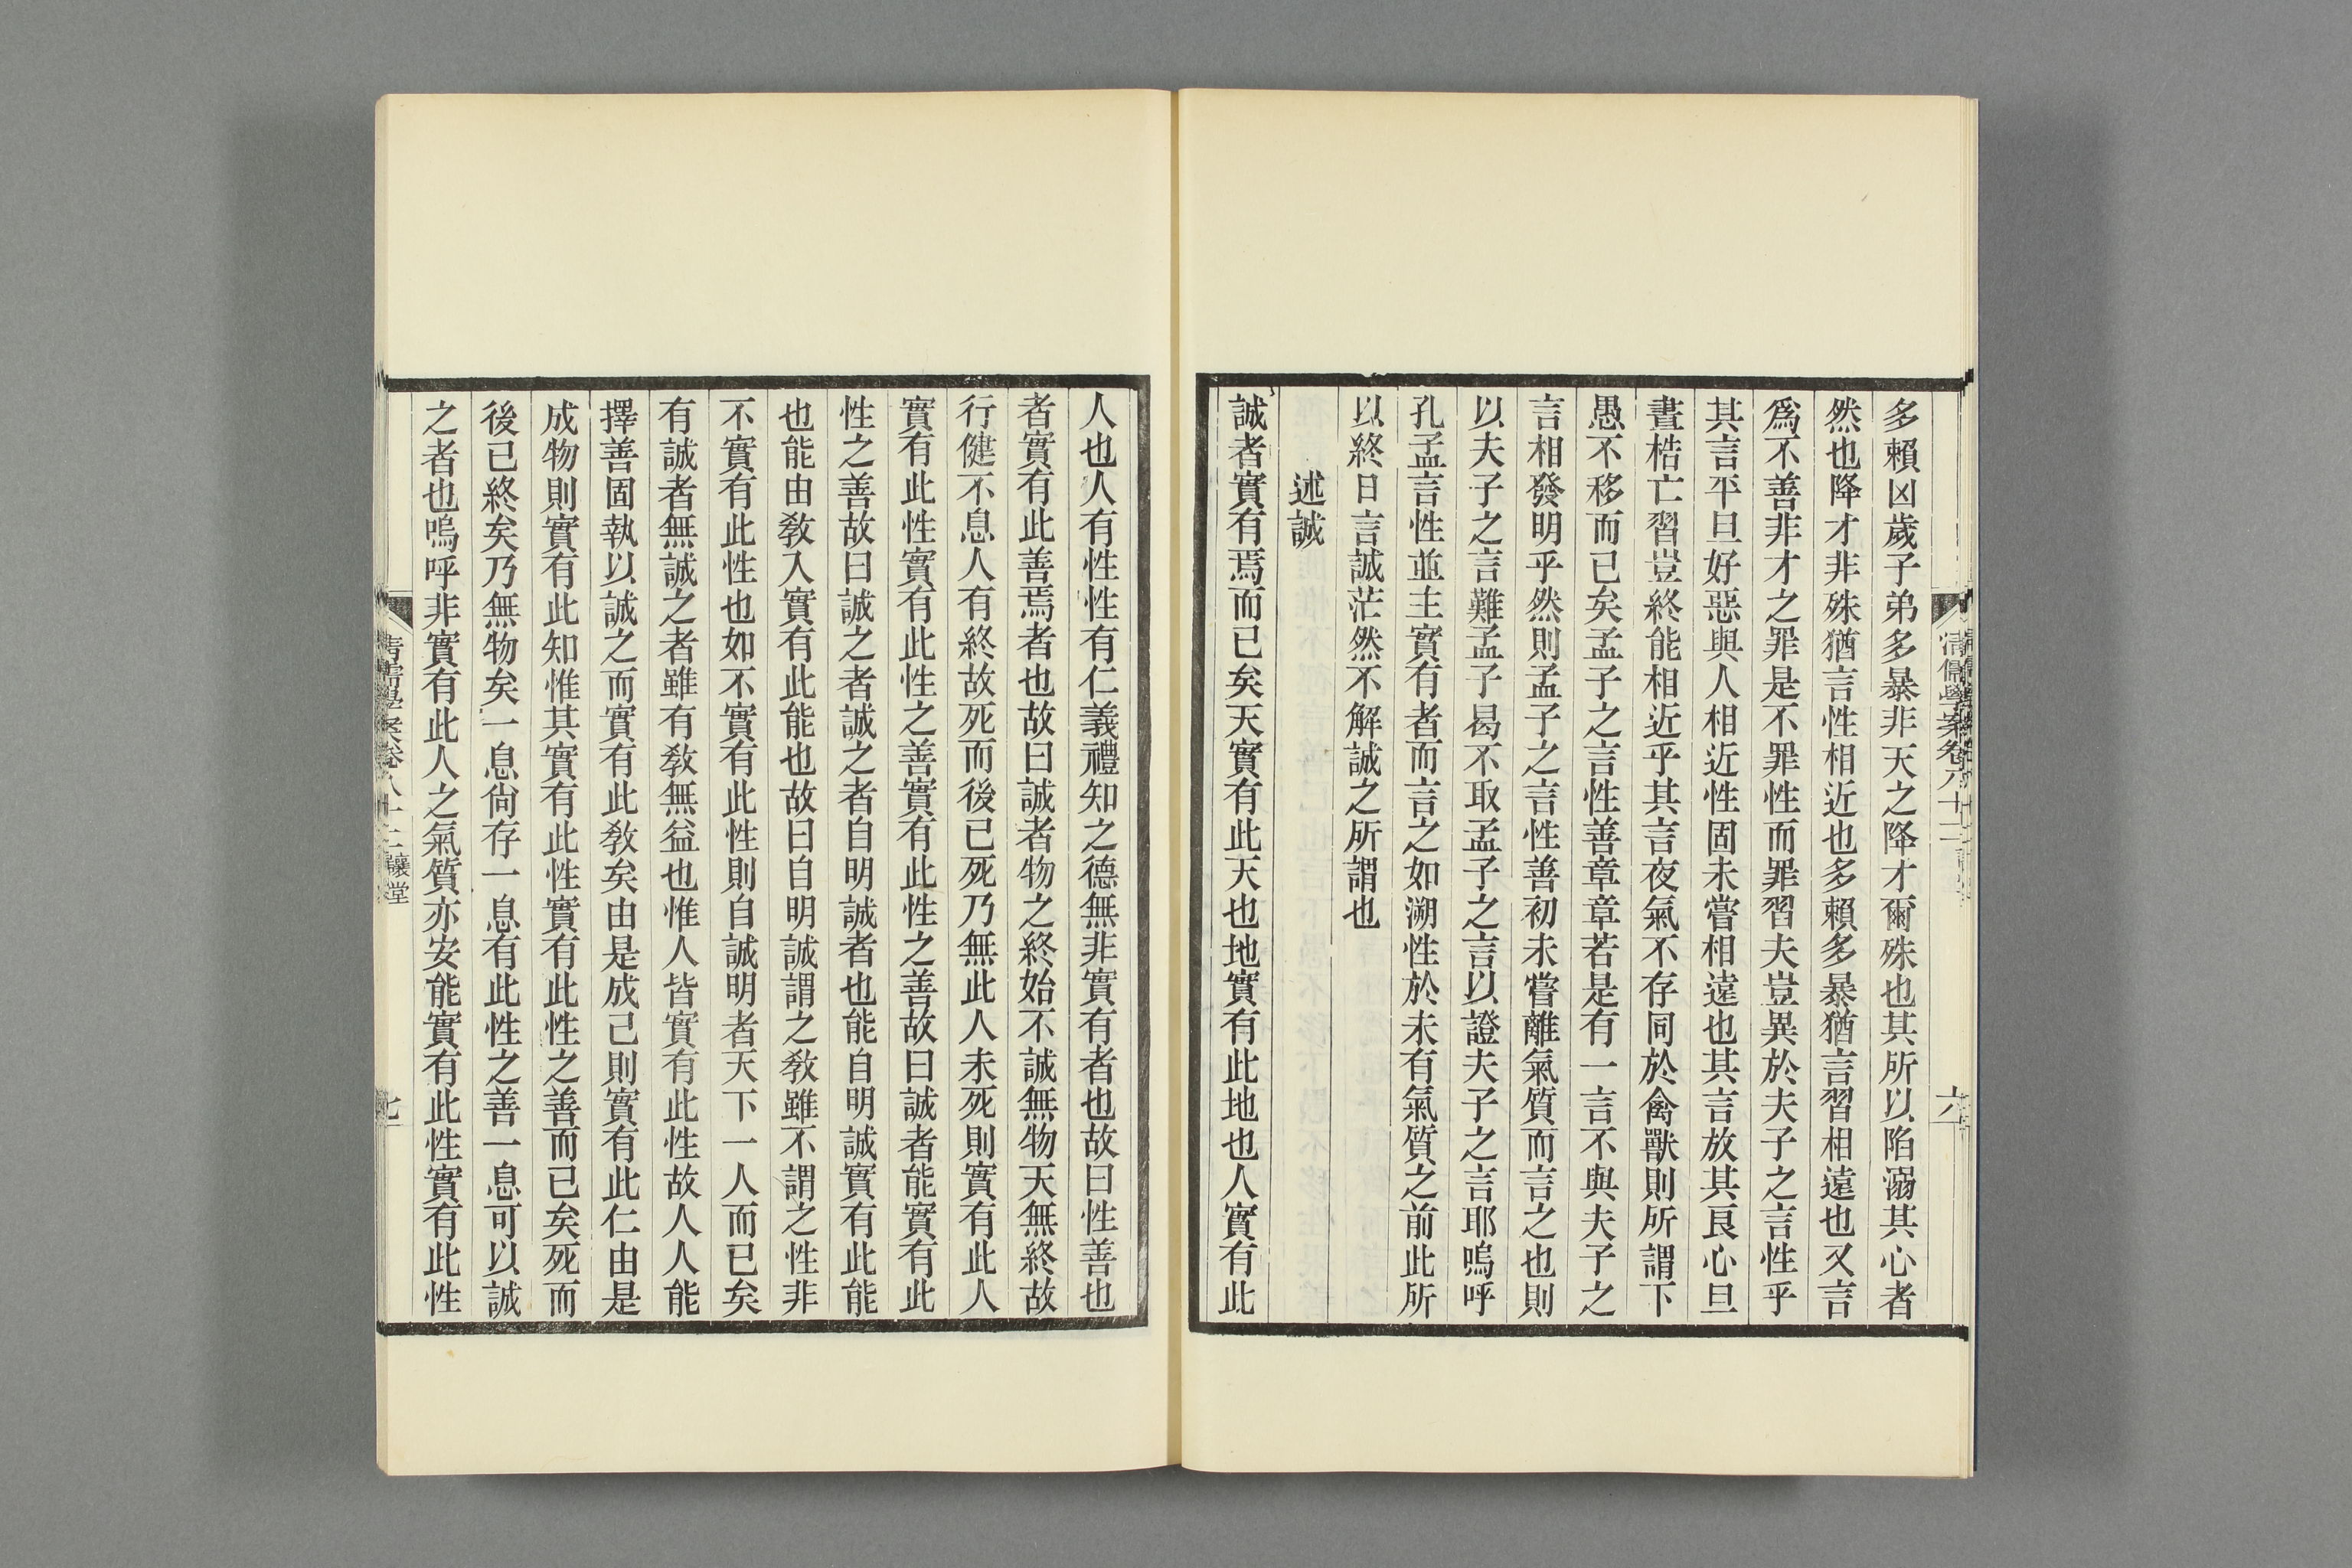 多賴凶歲子弟多暴非天之降才爾殊也其所以陷溺其心者
然也降才非殊猶言性相近也多賴多暴猶言習相遠也又言
爲不善非才之罪是不罪性而罪習夫豈異於夫子之言性乎
其言平旦好惡與人相近性固未嘗相遠也其言放其良心旦
晝梏亡習豈終能相近乎其言夜氣不存同於禽獸則所謂下
愚不移而已矣孟子之言性善章章若是有一言不與夫子之
言相發明乎然則孟子之言性善初未嘗離氣質而言之也則
以夫子之言難孟子曷不取孟子之言以證夫子之言耶嗚呼
孔孟言性並主實有者而言之如溯性於未有氣質之前此所
以終日言誠茫然不解誠之所謂也
述誠
誠者實有焉而已矣天實有此天也地實有此地也人實有此
人也人有性性有仁義禮知之德無非實有者也故曰性善也
者實有此善焉者也故曰誠者物之終始不誠無物天無終故
行健不息人有終故死而後已死乃無此人未死則實有此人
實有此性實有此性之善實有此性之善故曰誠者能實有此
性之善故曰誠之者誠之者自明誠者也能自明誠實有此能
也能由敎入實有此能也故曰自明誠謂之敎雖不謂之性非
不實有此性也如不實有此性則自誠明者天下一人而已矣
有誠者無誠之者雖有敎無益也惟人皆實有此性故人人能
擇善固執以誠之而實有此敎矣由是成己則實有此仁由是
成物則實有此知惟其實有此性實有此性之善而已矣死而
後已終矣乃無物矣一息尙存一息有此性之善一息可以誠
之者也嗚呼非實有此人之氣質亦安能實有此性實有此性